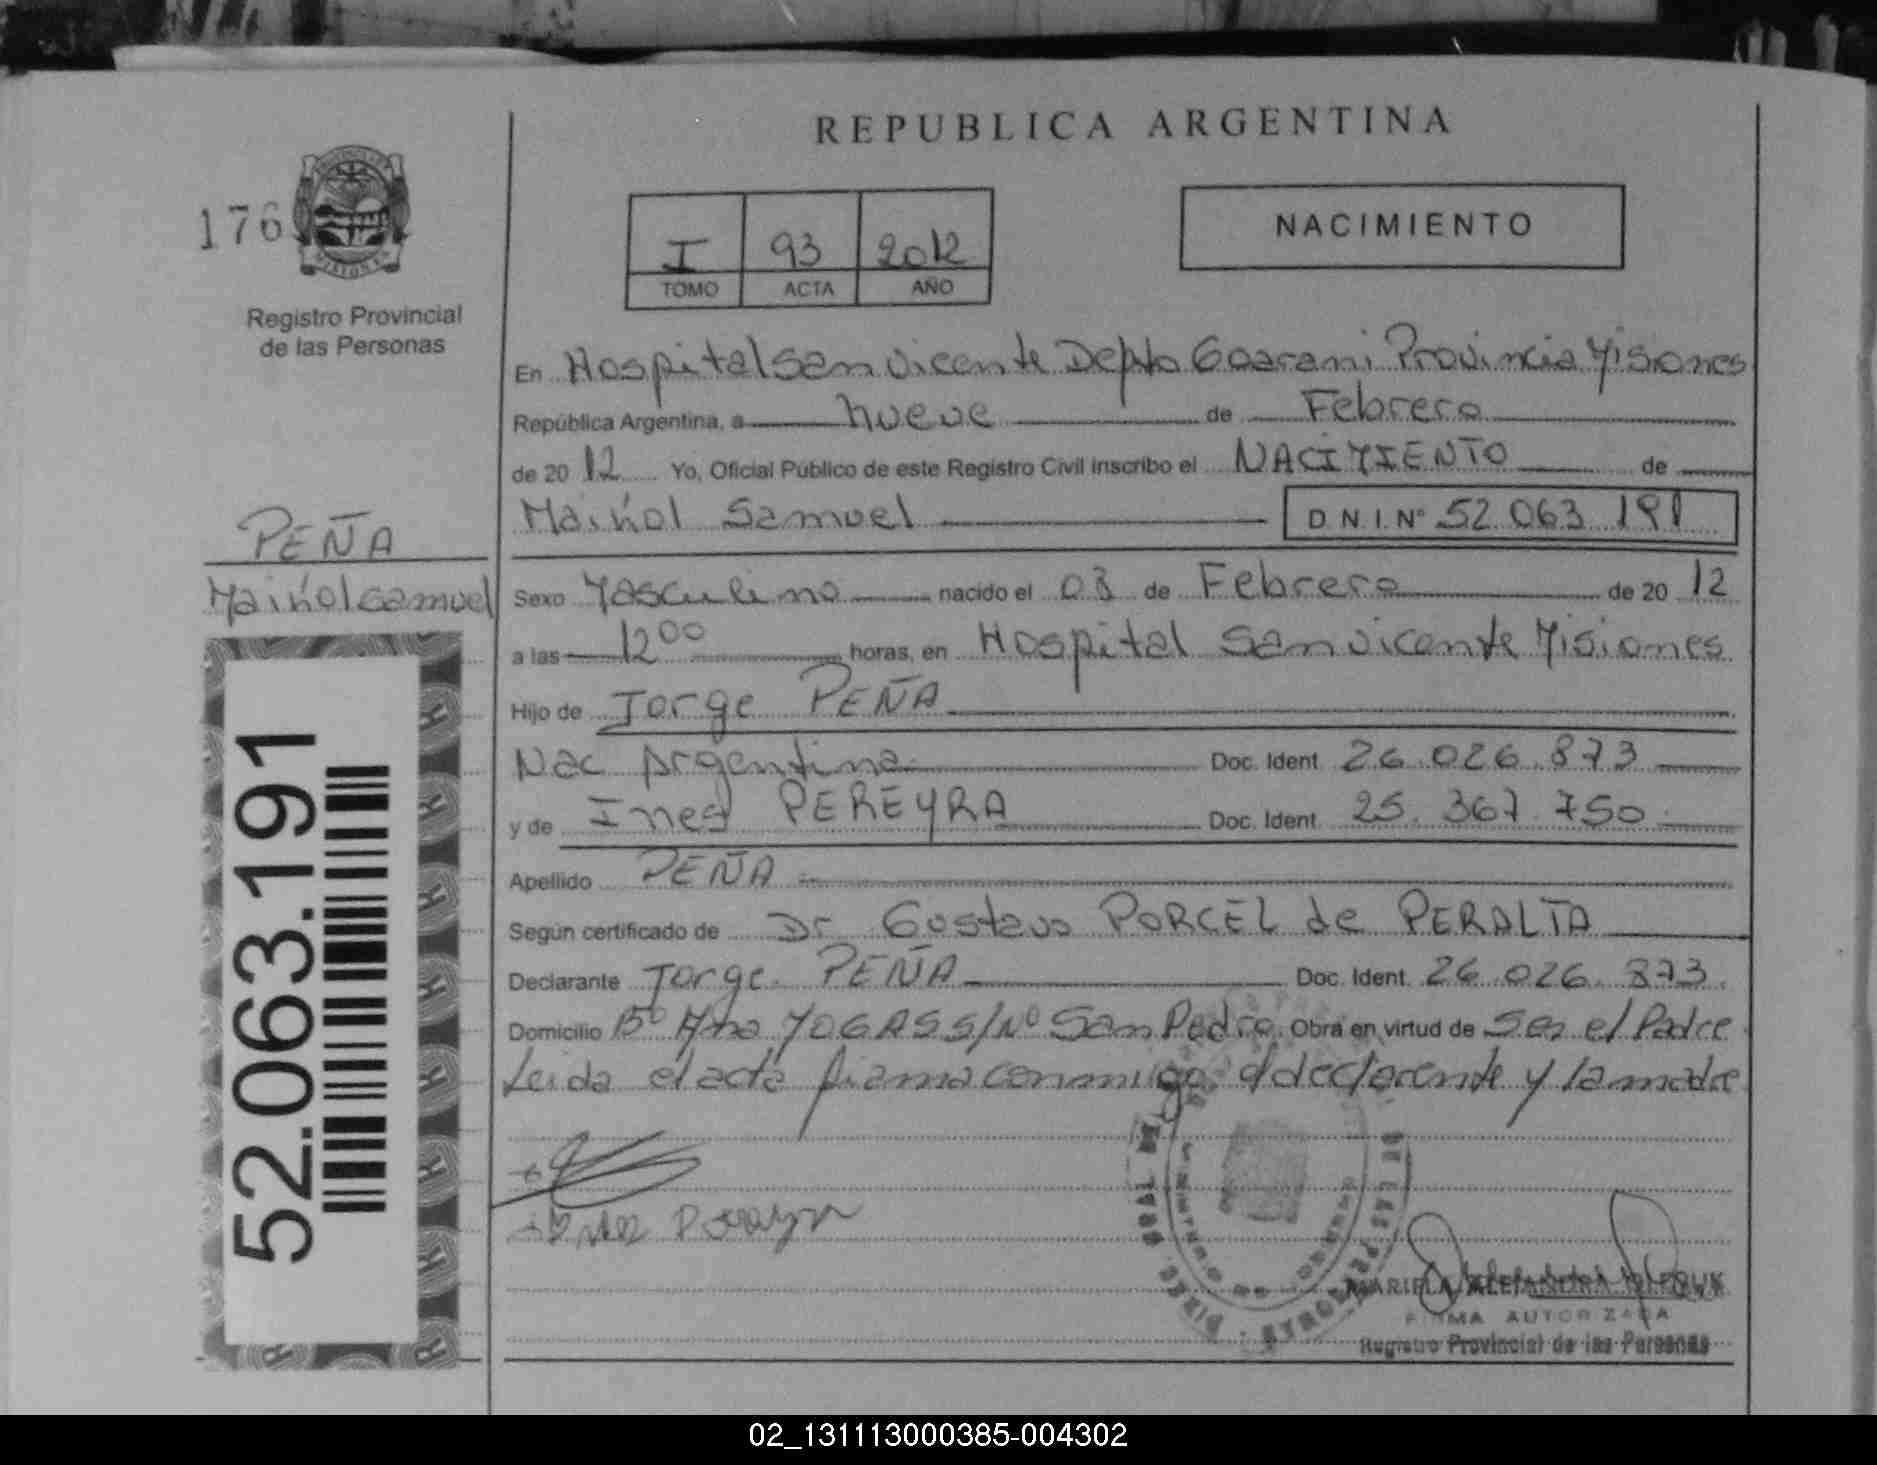 REPUBLICA ARGENTINA
176
Registro Provincial
de las Personas
I 93 2012
TOMO ACTA AÑO
NACIMIENTO
En Hospital San Vicente Depto Guarani Provincia Misiones
República Argentina, a nueve de Febrero
de 2012 Yo, Oficial Público de este Registro Civil inscribo el NACIMIENTO de
Maikol Samuel D.N.I.Nº 52.063.191
PEÑA
Maikol Samuel
Sexo Masculino nacido el 03 de Febrero de 2012
a las 12 00 horas, en Hospital San Vicente Misiones
Hijo de Jorge PEÑA
Nac Argentina Doc. Ident. 26.026.873
y de Ines PEREYRA Doc. Ident. 25.367.750
Apellido PEÑA
Según certificado de Dr Gustavo PORCEL de PERALTA
Declarante Jorge PEÑA Doc. Ident. 26.026.873
Domicilio Bº S/Nº San Pedro. Obra en virtud de Ser el Padre
Leida el acta firma conmigo el declarante y la madre
52.063.191
FIRMA AUTORIZADA
Registro Provincial de las Personas
02_131113000385-004302